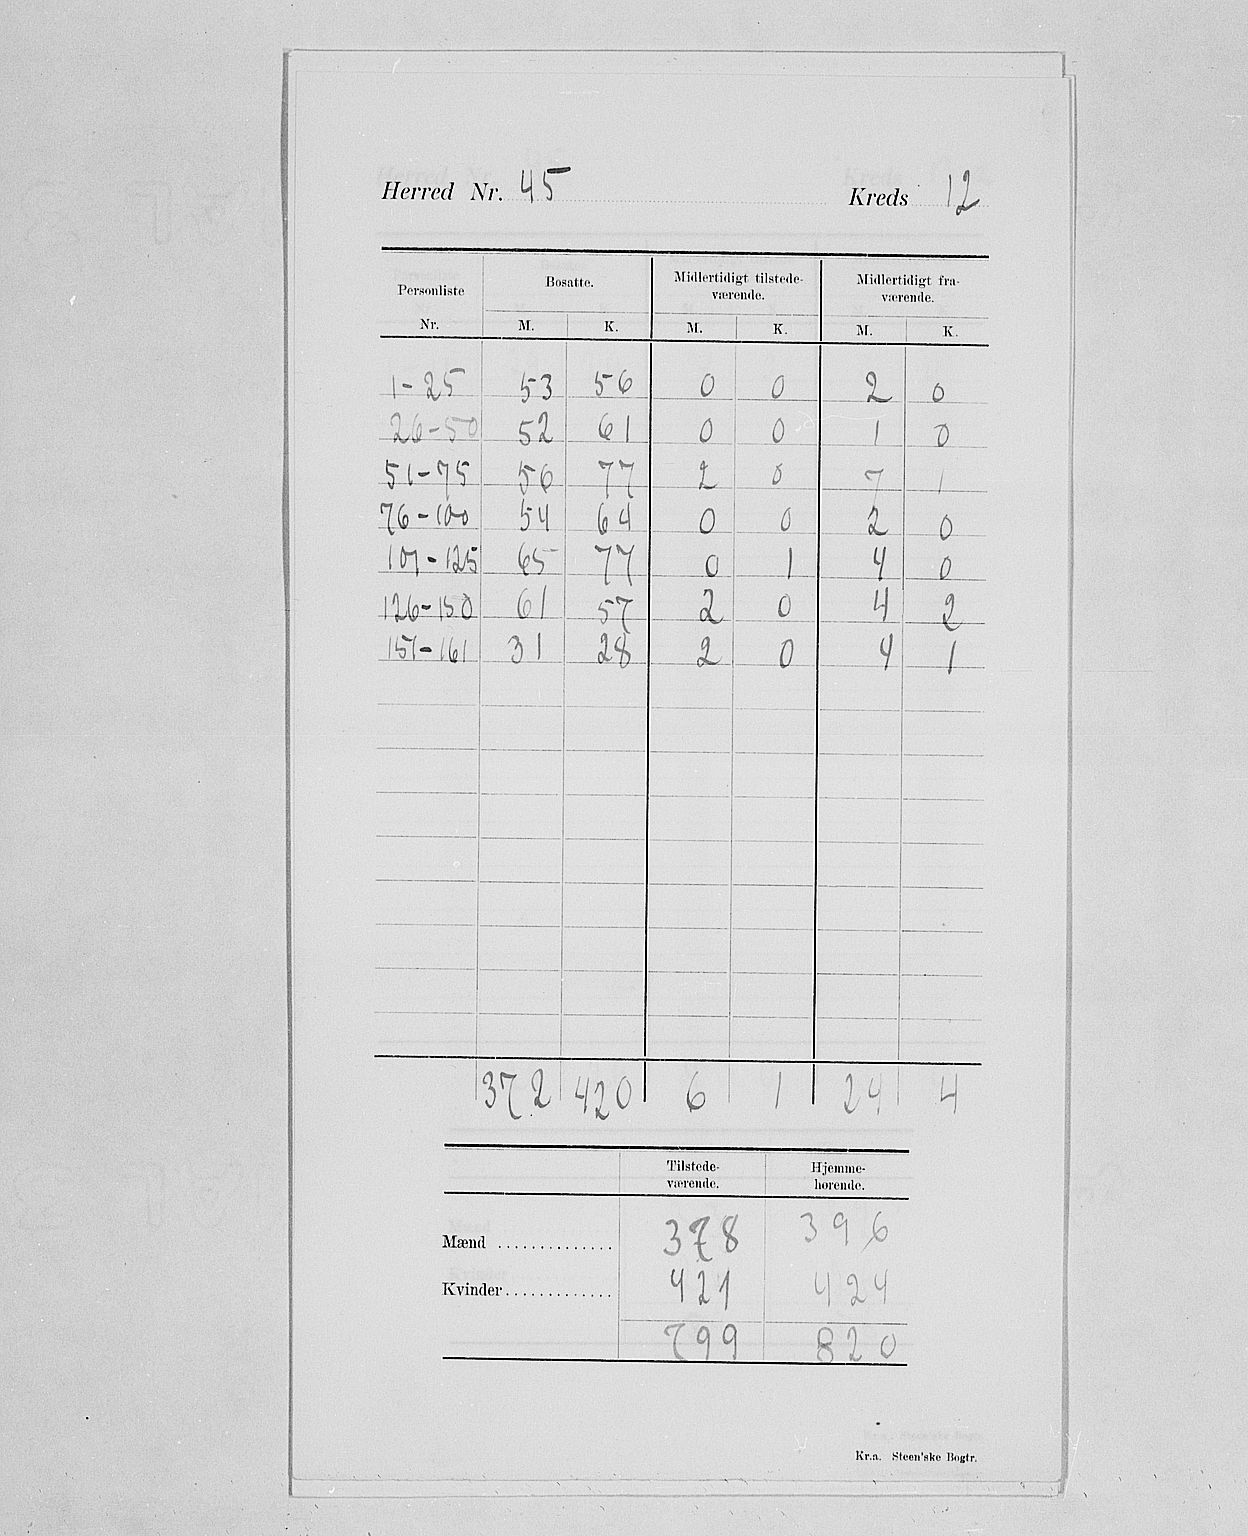 Herred Nr. 45 Kreds 12
Personliste Nr. Bosatte. Midlertidigt tilstede-værende. Midlertidigt fra-værende.
M. K. M. K. M. K.
1-25 53 56 0 0 2 0
26-50 52 61 0 0 1 0
51-75 56 77 2 0 7 1
76-100 54 64 0 0 2 0
101-125 65 77 0 1 4 0
126-150 61 57 2 0 4 2
151-161 31 28 2 0 4 1
372 420 6 1 24 4
Tilstede-værende. Hjemme-hørende.
Mænd .............. 378 396
Kvinder............. 421 424
799 820
Kr.a. Steen'ske Bogtr.